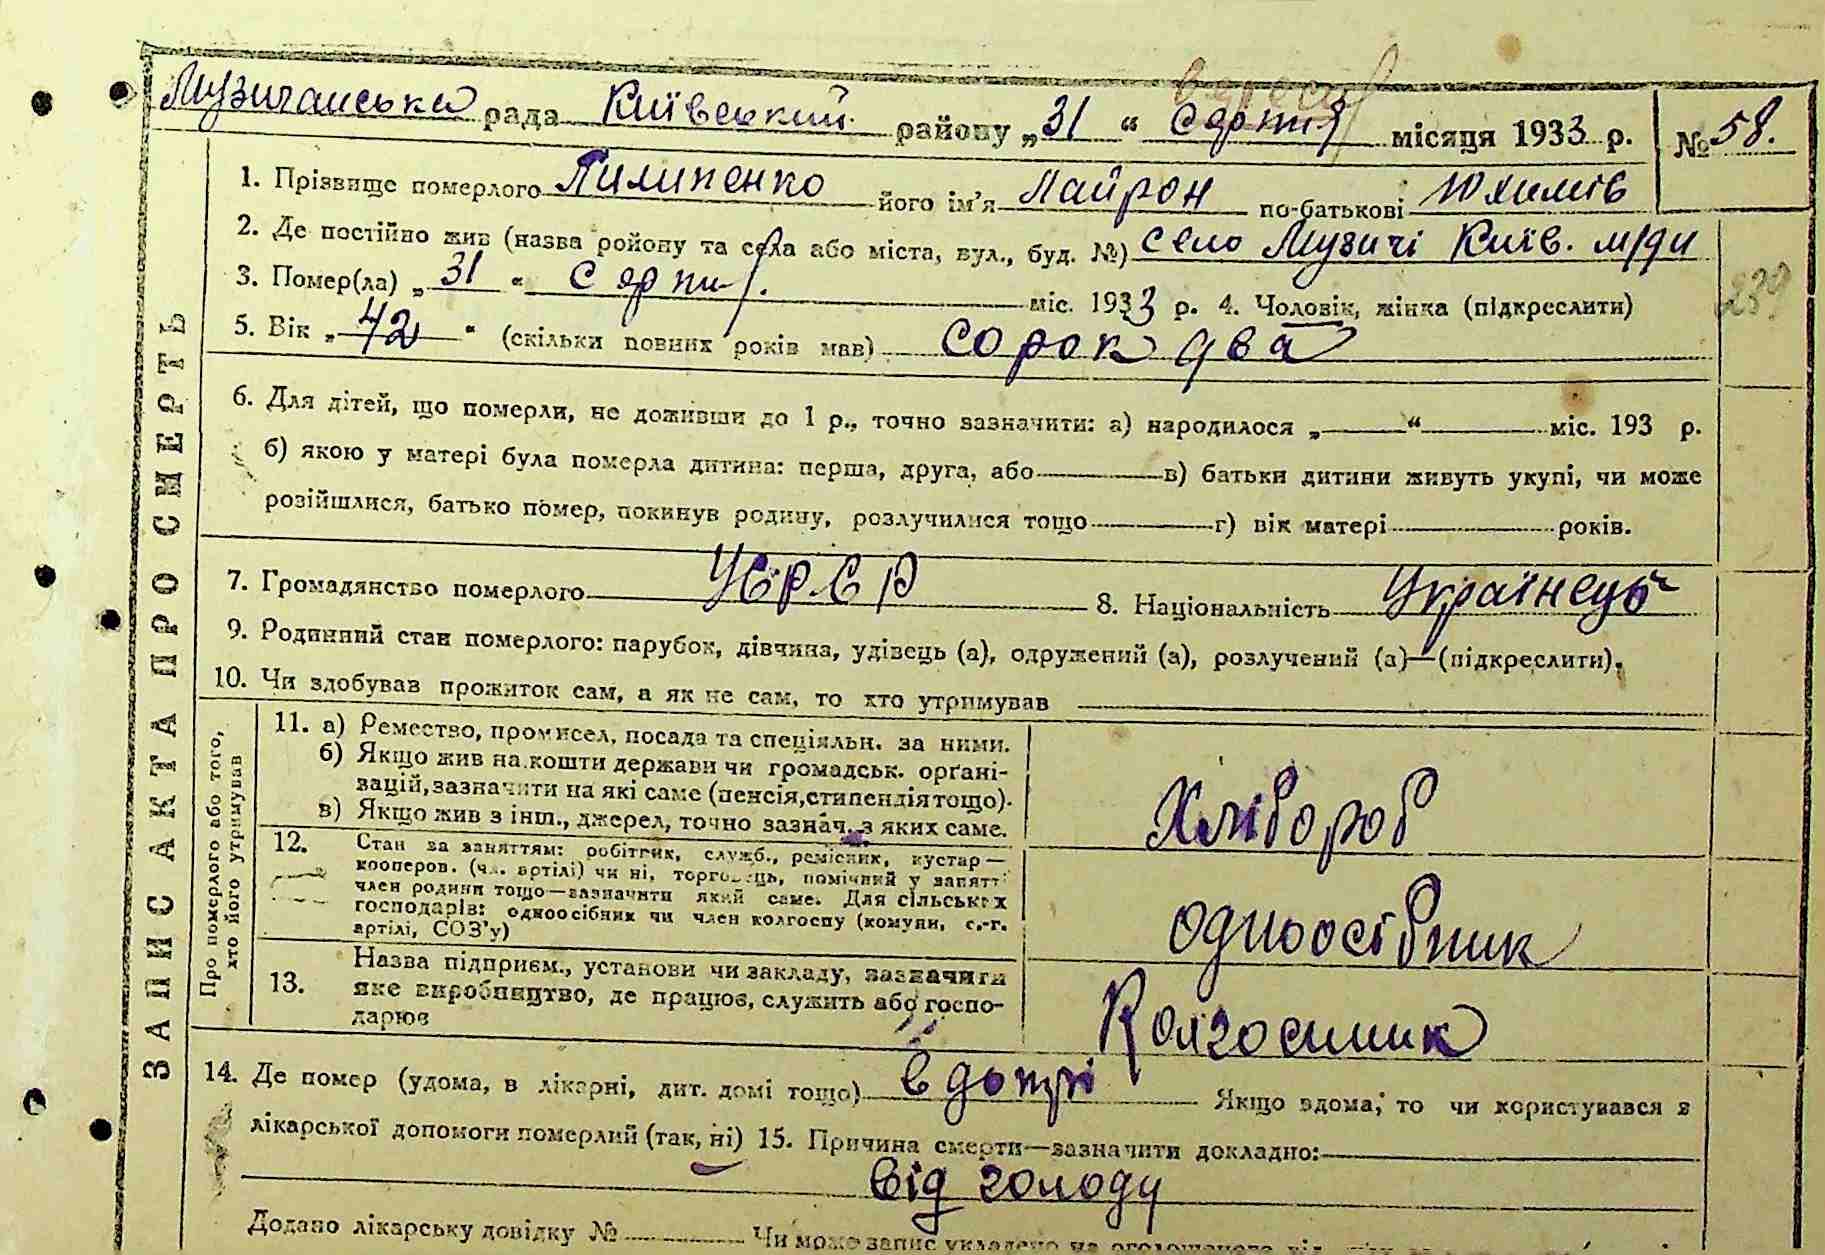 Музичанська рада Київський району „31“ Серпня місяця 1933 р. № 58.
1. Прізвище померлого Пилипенко його ім'я Лайрон по-батькові Юхимів
2. Де постійно жив (назва ройону та села або міста, вул., буд. №) село Музичі Київ. м/ди
3. Помер(ла) „31“ Серпня міс. 1933 р. 4. Чоловік, жінка (підкреслити)
5. Вік „42“ (скільки повних років мав) сорок два
239
6. Для дітей, що померли, не доживши до 1 р., точно зазначити: а) народилося „ “ міс. 193 р.
б) якою у матері була померла дитина: перша, друга, або в) батьки дитини живуть укупі, чи може
розійшлися, батько помер, покинув родину, розлучилися тощо г) вік матері років.
7. Громадянство померлого УСРСР 8. Національність Українець
9. Родинний стан померлого: парубок, дівчина, удівець (а), одружений (а), розлучений (а)—(підкреслити).
10. Чи здобував прожиток сам, а як не сам, то хто утримував
ЗАПИС АКТА ПРО СМЕРТЬ
Про померлого або того,
хто його утримував
11. а) Ремество, промисел, посада та спеціяльн. за ними.
б) Якщо жив на кошти держави чи громадськ. орґані-
зацій, зазначити на які саме (пенсія, стипендія тощо).
в) Якщо жив з інш., джерел, точно зазнач. з яких саме.
Хлібороб
12. Стан за заняттям: робітник, служб., ремісник, кустар—
кооперов. (чл. артілі) чи ні, торговець, помічний у занятті
член родини тощо—зазначити який саме. Для сільських
господарів: одноосібник чи член колгоспу (комуни, с.-г.
артілі, СОЗ'у)
одноосібник
13. Назва підприєм., установи чи закладу, зазначити
яке виробництво, де працює, служить або госпо-
дарює
Колгоспник
14. Де помер (удома, в лікарні, дит. домі тощо) в домі Якщо вдома, то чи користувався з
лікарської допомоги померлий (так, ні) 15. Причина смерти—зазначити докладно:
від голоду
Додано лікарську довідку № Чи може запис укладено на оголошеного